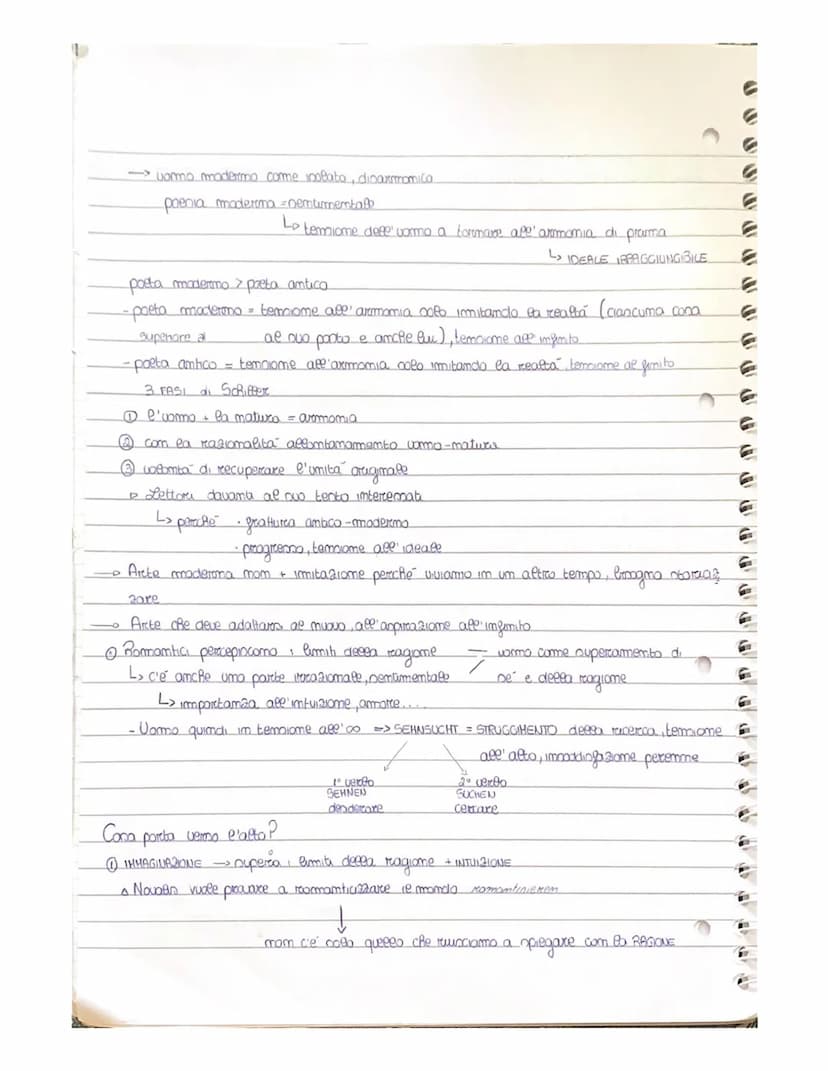 → uomo moderno come isolato, disarmonico
poesia moderna = sentimentale
↳ tensione dell'uomo a tornare all'armonia di prima
↳ IDEALE IRRAGGIUNGIBILE
poeta moderno > poeta antico
- poeto moderno = tensione all'armonia solo imitando la realtá (ciascuna cosa
superiore al al suo posto e anche lui), tensione all'infinito
- poeta antico = tensione all'armonia solo imitando la realtá, tensione al finito
3 FASI di Schiller
① l'uomo + la natura = armonia
② con la razionalitá allontanamento uomo-natura
③ volontá di recuperare l'unitá originale
▷ Lettori davanti al suo testo interessati
↳ perché · frattura antico-moderno
· progresso, tensione all'ideale
→ Arte moderna non + imitazione perché viviamo in un altro tempo, bisogna storiciz
zare
→ Arte che deve adattarsi al nuovo, all'aspirazione all'infinito
① Romantici percepiscono i limiti della ragione — uomo come superamento di
↳ c'é anche una parte irrazionale, sentimentale sé e della ragione
↳ importanza all'intuizione, amore....
- Uomo quindi in tensione all'∞ => SEHNSUCHT = STRUGGIMENTO della ricerca, tensione
all'alto, insoddisfazione perenne
1° verbo 2° verbo
SEHNEN SUCHEN
desiderare cercare
Cosa porta verso l'alto?
① IMMAGINAZIONE → supera i limiti della ragione + INTUIZIONE
△ Novalis vuole provare a romanticizzare il mondo romantisieren
↓
non c'é solo quello che riusciamo a spiegare con la RAGIONE